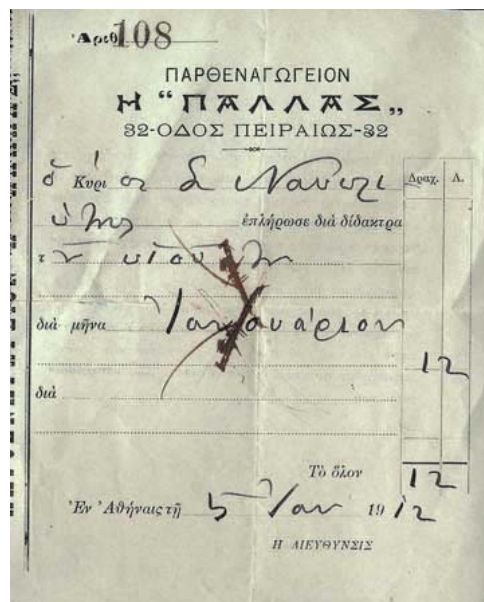 Ἀριθ. 108
ΠΑΡΘΕΝΑΓΩΓΕΙΟΝ
Η “ΠΑΛΛΑΣ„
32-ΟΔΟΣ ΠΕΙΡΑΙΩΣ-32
ὁ Κύριος
Δραχ. Λ.
ἐπλήρωσε διὰ δίδακτρα
τοῦ υἱοῦ του
διὰ μῆνα Ἰανουάριον
12
διὰ
Τὸ ὅλον 12
Ἐν Ἀθήναις τῇ 5 Ἰαν 1912
Η ΔΙΕΥΘΥΝΣΙΣ